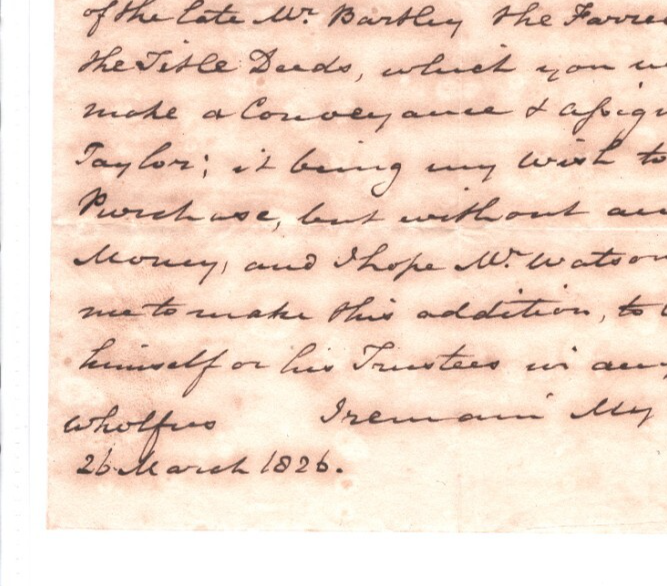 of the late Mr. Bartley the
the Title Deeds, which you
make a Conveyance & assign
Taylor; it being my wish to
Purchase, but without
Money, and I hope Mr. Watson
me to make this addition, to
himself or his Trustees in any
I remain My
26 March 1826.